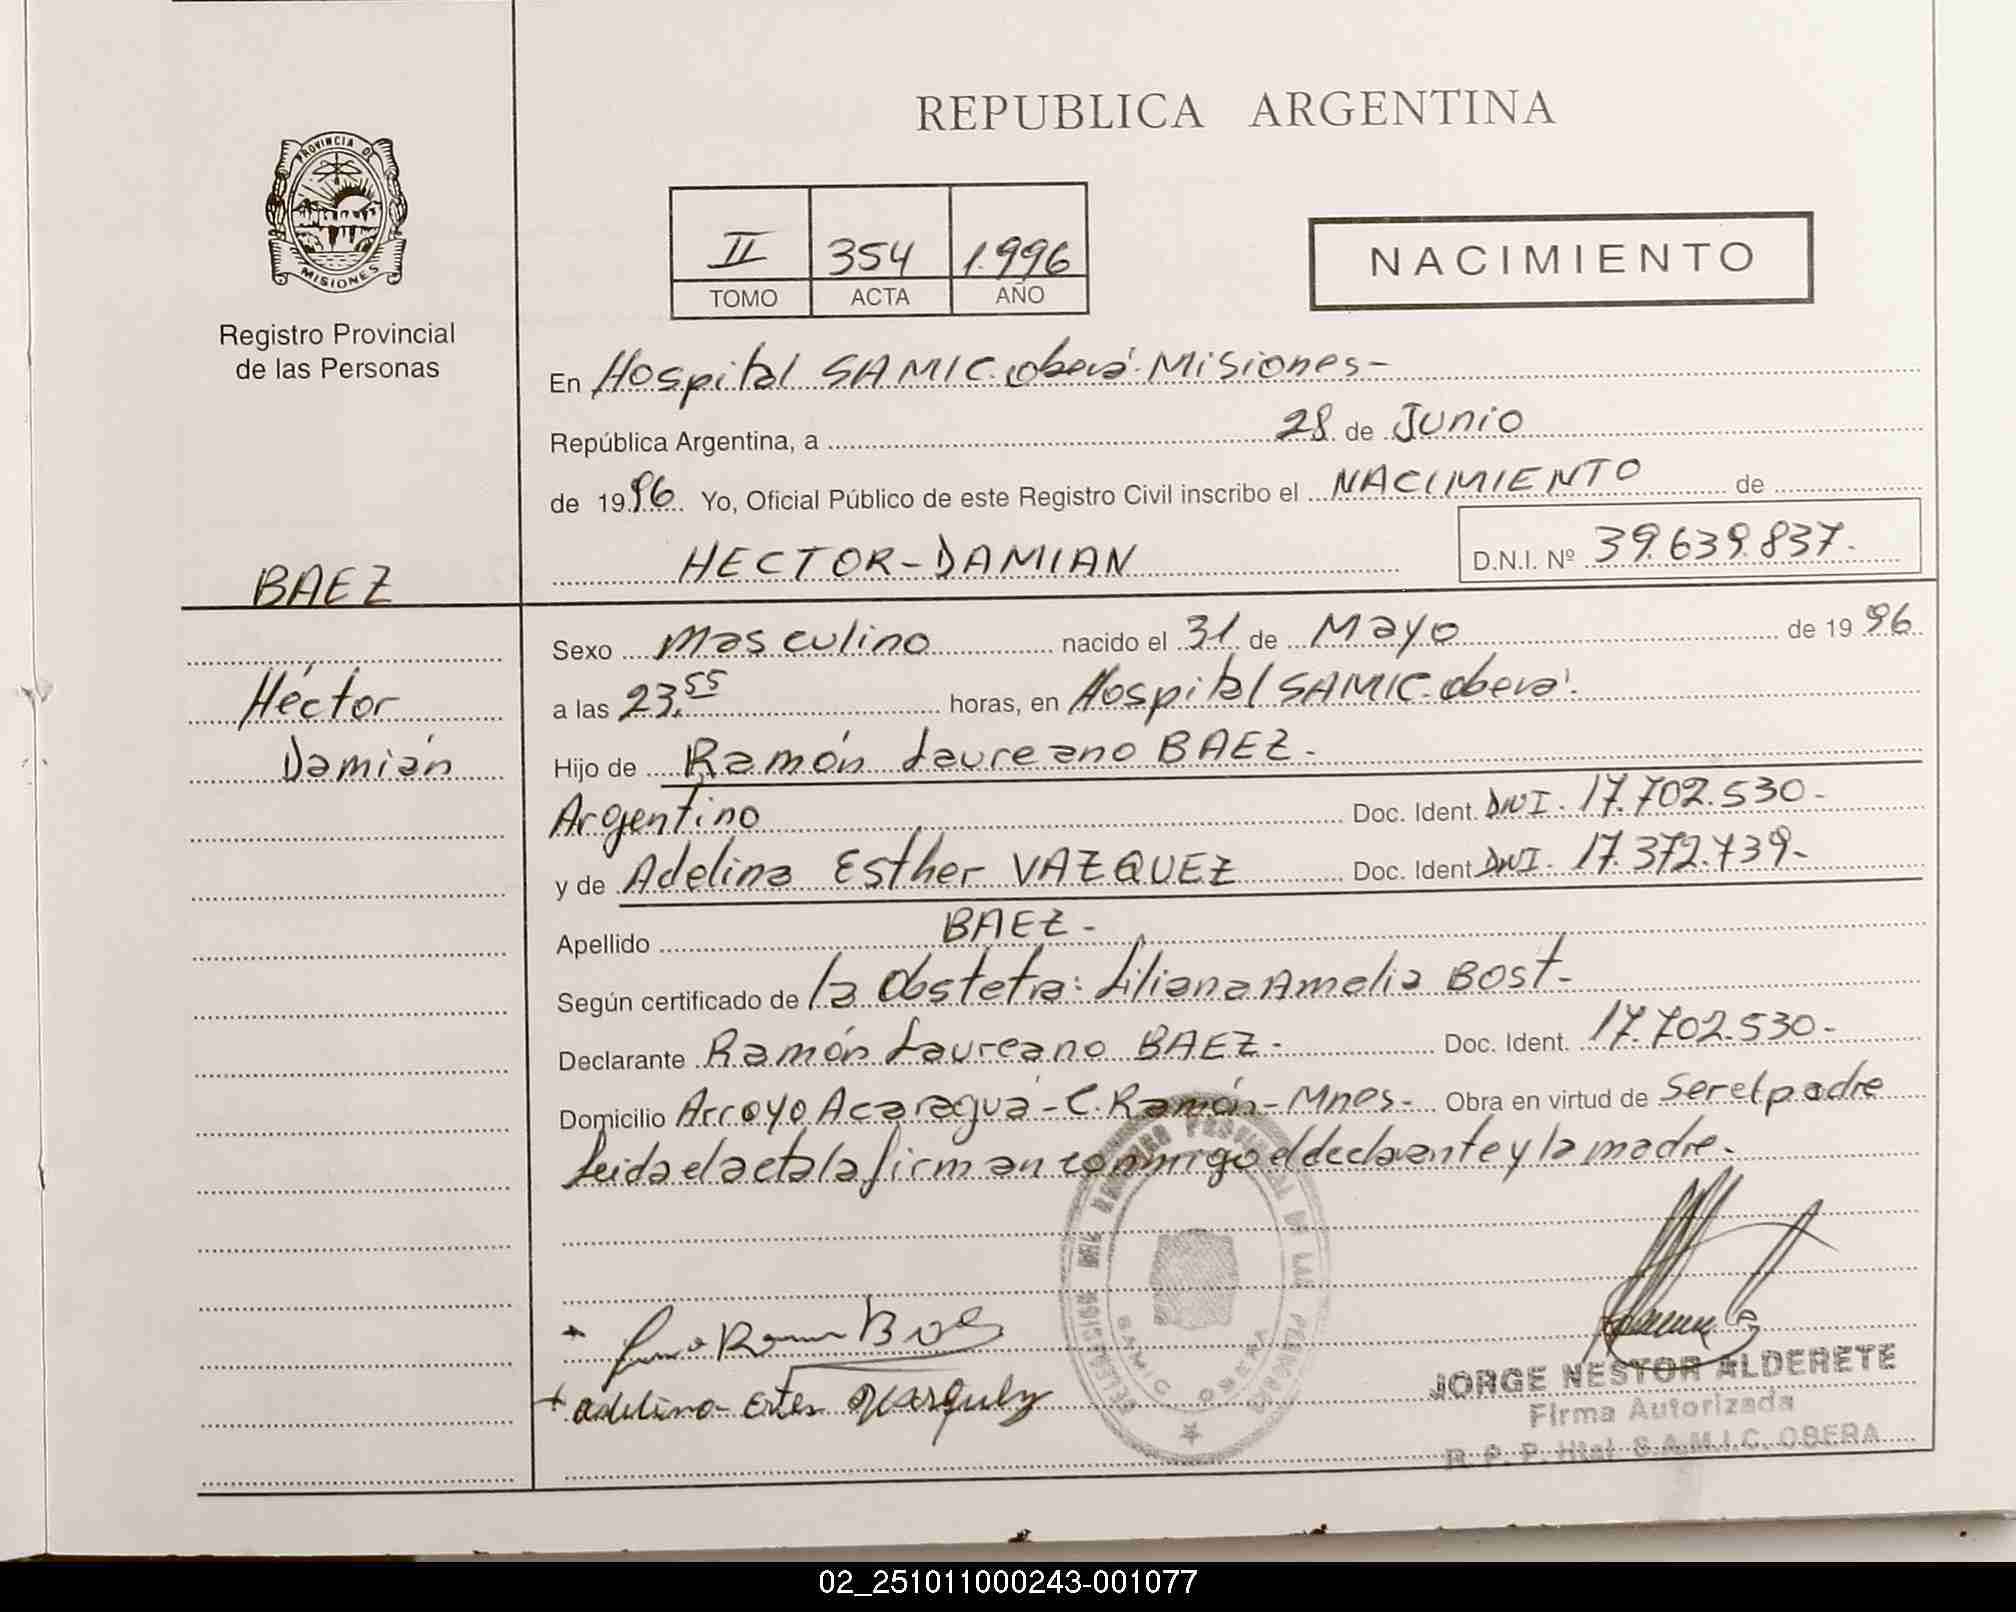 REPUBLICA ARGENTINA
PROVINCIA DE
MISIONES
Registro Provincial
de las Personas
II 354 1.996
TOMO ACTA AÑO
NACIMIENTO
En Hospital SAMIC. Oberá. Misiones-
República Argentina, a 28 de Junio
de 1996 Yo, Oficial Público de este Registro Civil inscribo el NACIMIENTO de
HECTOR-DAMIAN D.N.I. Nº 39.639.837.-
BAEZ
Héctor
Damián
Sexo Masculino nacido el 31 de Mayo de 1996
a las 23,55 horas, en Hospital SAMIC. Oberá.
Hijo de Ramón Laureano BAEZ.-
Argentino Doc. Ident. DNI. 17.702.530-
y de Adelina Esther VAZQUEZ Doc. Ident DNI. 17.372.739-
Apellido BAEZ-
Según certificado de la Obstetra: Liliana Amelia BOST-
Declarante Ramón Laureano BAEZ- Doc. Ident. 17.702.530-
Domicilio Arroyo Acaraguá-C. Ramón-Mnes- Obra en virtud de Ser el padre
Leida el acta la firman conmigo el declarante y la madre.
PROVINCIAL DE LAS PERSONAS
SAMIC OBERA
JORGE NESTOR ALDERETE
Firma Autorizada
R. P. P. Htal S.A.M.I.C. OBERA
02_251011000243-001077